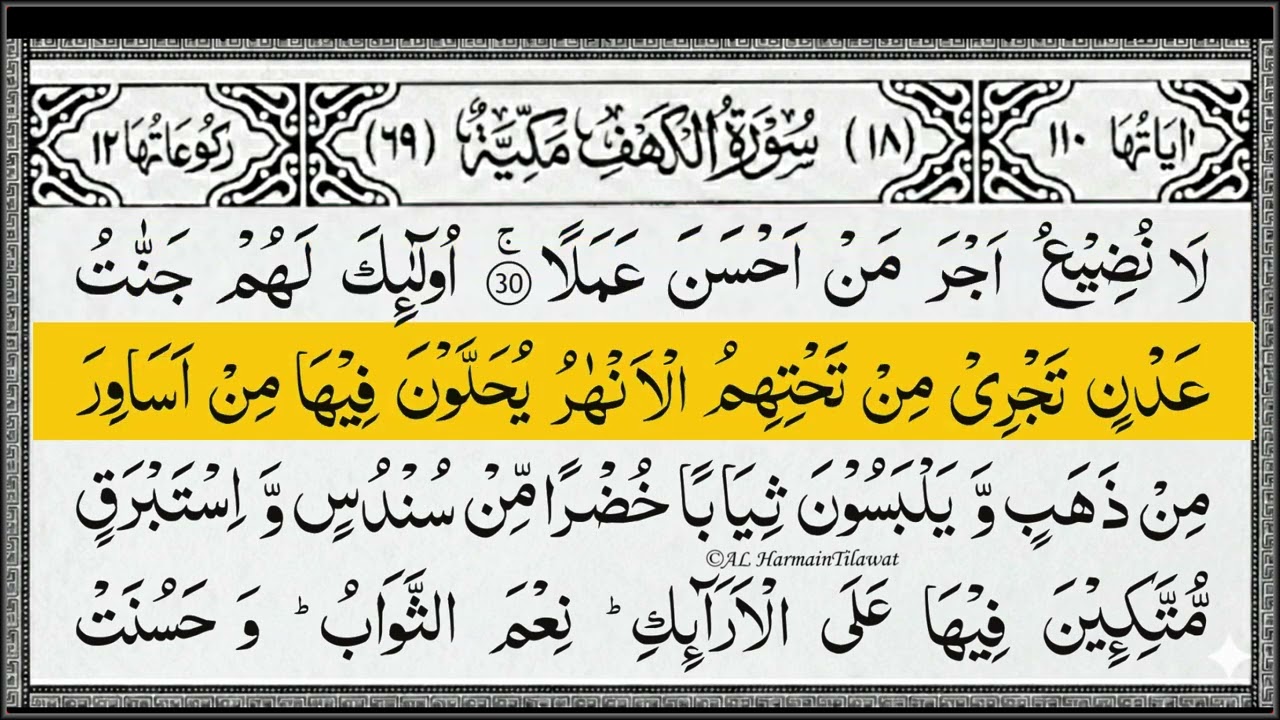 اٰيَاتُهَا ١١٠ (١٨) سُوْرَةُ الْكَهْفِ مَكِّيَّةٌ (٦٩) رُكُوْعَاتُهَا ١٢
لَا نُضِيْعُ اَجْرَ مَنْ اَحْسَنَ عَمَلًا ۚ 30 اُولٰٓئِكَ لَهُمْ جَنّٰتُ
عَدْنٍ تَجْرِىْ مِنْ تَحْتِهِمُ الْاَنْهٰرُ يُحَلَّوْنَ فِيْهَا مِنْ اَسَاوِرَ
مِنْ ذَهَبٍ وَّ يَلْبَسُوْنَ ثِيَابًا خُضْرًا مِّنْ سُنْدُسٍ وَّ اِسْتَبْرَقٍ
©AL HarmainTilawat
مُّتَّكِـِٕيْنَ فِيْهَا عَلَى الْاَرَآٮِٕكِ ؕ نِعْمَ الثَّوَابُ ؕ وَ حَسُنَتْ